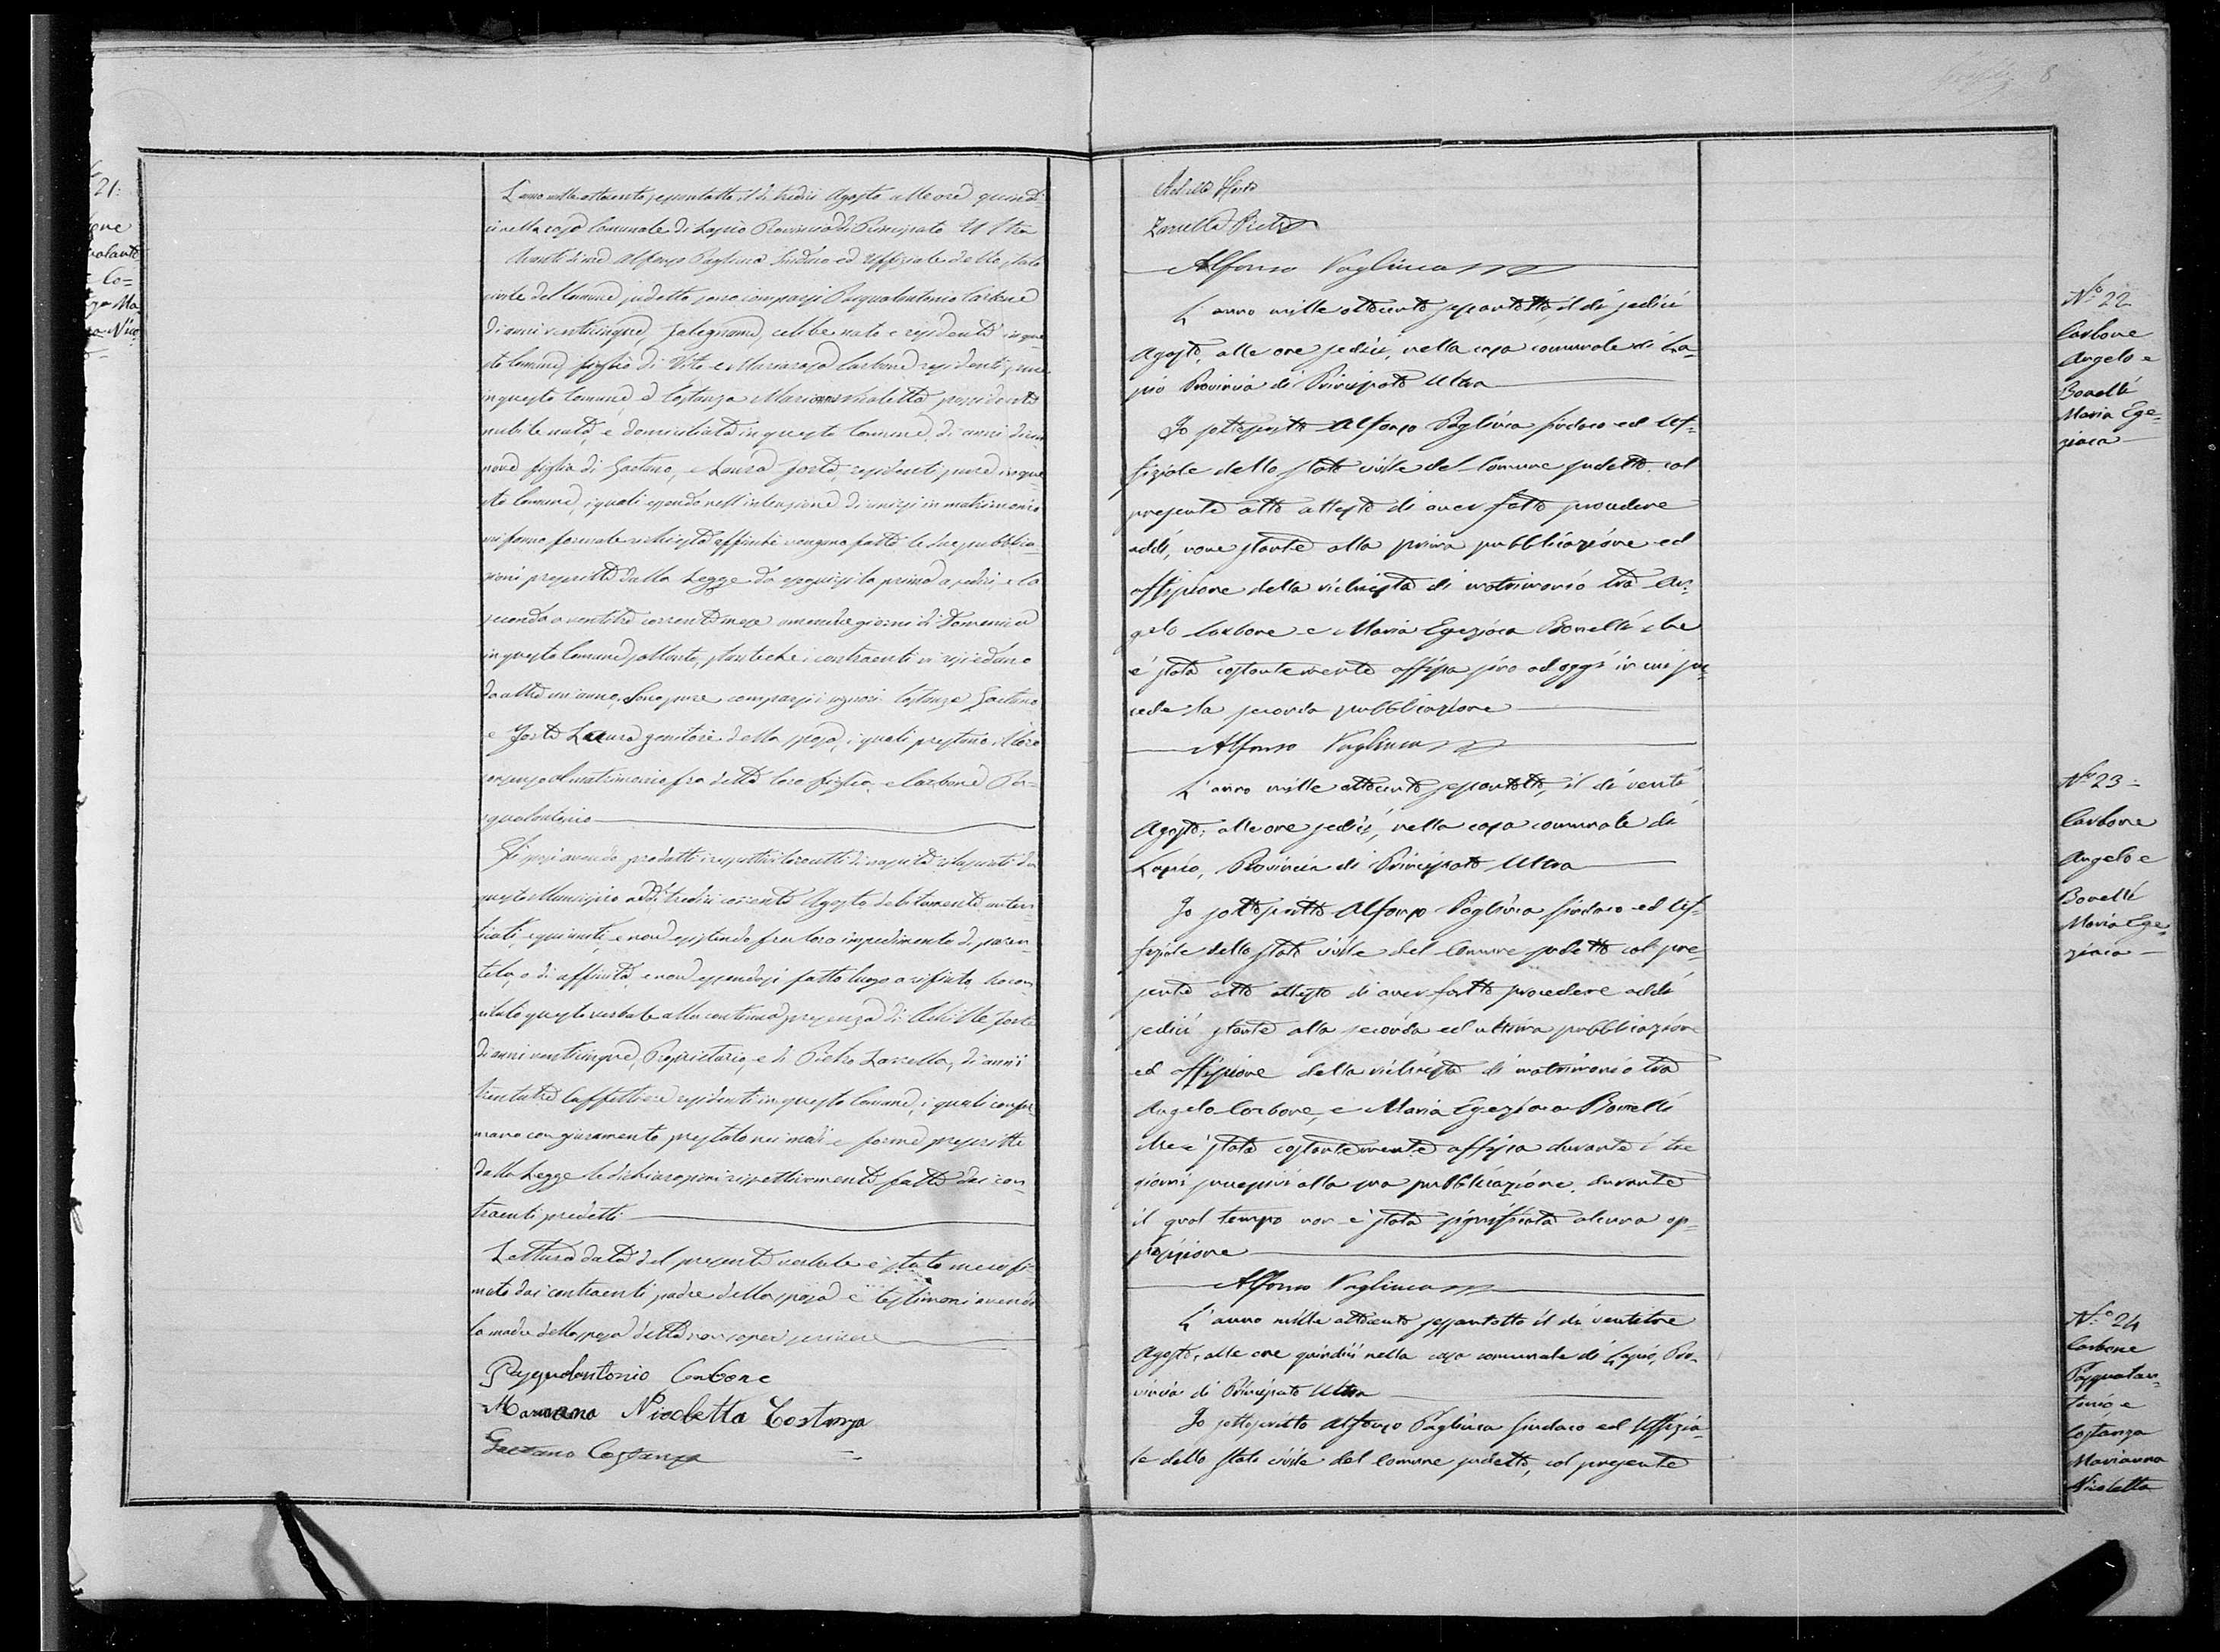 8
N° 21:
L'anno mille ottocento sessantotto il dì tredici Agosto alle ore quindi=
ci nella casa Comunale di Lapio Provincia di Principato Ultra
Avanti di me Alfonso Pagliuca Sindaco ed Uffiziale dello stato
civile del Comune sudetto sono comparsi Pasqualantonio Carbone
di anni venticinque, falegname, celibe nato e residente in que=
sto Comune figlio di Vito e Mariarosa Carbone residenti pure
in questo Comune, e Costanza Marianna Nicoletta possidente
nubile nata, e domiciliata in questo Comune, di anni dician
nove figlia di Gaetano, e Laura Forte, residenti pure in que=
sto Comune, i quali essendo nell'intenzione di unirsi in matrimonio
mi fanno formale richiesta affinché vengano fatte le due pubblica=
zioni prescritte dalla Legge da eseguirsi la prima a sedici, e la
seconda a ventitre corrente mese amendue giorni di Domenica
in questo Comune soltanto, stanteché i contraenti vi risiedono
da oltre un anno. Sono pure comparsi i signori Costanza Gaetano
e Forte Laura genitori della sposa, i quali prestano il loro
consenso al matrimonio fra detta loro figlia, e Carbone Pa=
squalantonio
Gli sposi avendo prodotti i rispettivi loro atti di nascita rilasciati da
questo Municipio addì tredici corrente Agosto, debitamente auten=
ticati, e quì uniti, e non esistendo fra loro impedimento di paren=
tela, o di affinità, e non essendosi fatto luogo a rifiuto, ho com
pilato questo verbale alla continua presenza di Achille Forte
di anni venticinque, Proprietario, e di Pietro Zarrella, di anni
trentatre Caffettiere residenti in questo Comune, i quali confer
mano con giuramento prestato nei modi e forme prescritte
dalla Legge le dichiarazioni rispettivamente fatte dai con=
traenti predetti
Lettura data del presente verbale è stato meco fir
mato dai contraenti padre della sposa e testimoni avendo
la madre della sposa detto non saper scrivere
Pasqualantonio Carbone
Marianna Nicoletta Costanza
Gaetano Costanza
Achille Forte
Zarrella Pietro
Alfonso Pagliuca
N° 22
Carbone
Angelo e
Borelli
Maria Ege=
ziaca
L'anno mille ottocento sessantotto, il dì sedici
Agosto, alle ore sedici, nella casa comunale di La=
pio Provincia di Principato Ultra
Io sottoscritto Alfonso Pagliuca sindaco ed Uf=
fiziale dello stato civile del Comune sudetto col
presente atto attesto di aver fatto procedere
addì, nove stante alla prima pubblicazione ed
affissione della richiesta di matrimonio tra An=
gelo Carbone e Maria Egeziaca Borrelli che
è stata costantemente affissa sino ad oggi in cui suc
cede la seconda pubblicazione
Alfonso Pagliuca
N° 23=
Carbone
Angelo e
Borelli
Maria Ege=
ziaca
L'anno mille ottocento sessantotto, il dì venti
Agosto, alle ore sedici, nella casa comunale di
Lapio, Provincia di Principato Ultra
Io sottoscritto Alfonso Pagliuca sindaco ed Uf=
fiziale dello stato civile del Comune sudetto col pre=
sente atto attesto di aver fatto procedere addì
sedici stante alla seconda ed ultima pubblicazione
ed affissione della richiesta di matrimonio tra
Angelo Carbone, e Maria Egeziaca Borrelli
che è stata costantemente affissa durante i tre
giorni successivi alla sua pubblicazione, durante
il qual tempo non è stata significata alcuna op=
posizione
Alfonso Pagliuca
N° 24
Carbone
Pasqualan=
tonio e
Costanza
Marianna
Nicoletta
L'anno mille ottocento sessantotto il dì ventitre
Agosto, alle ore quindici nella casa comunale di Lapio, Pro=
vincia di Principato Ultra
Io sottoscritto Alfonso Pagliuca sindaco ed Uffizia=
le dello stato civile del Comune sudetto, col presente